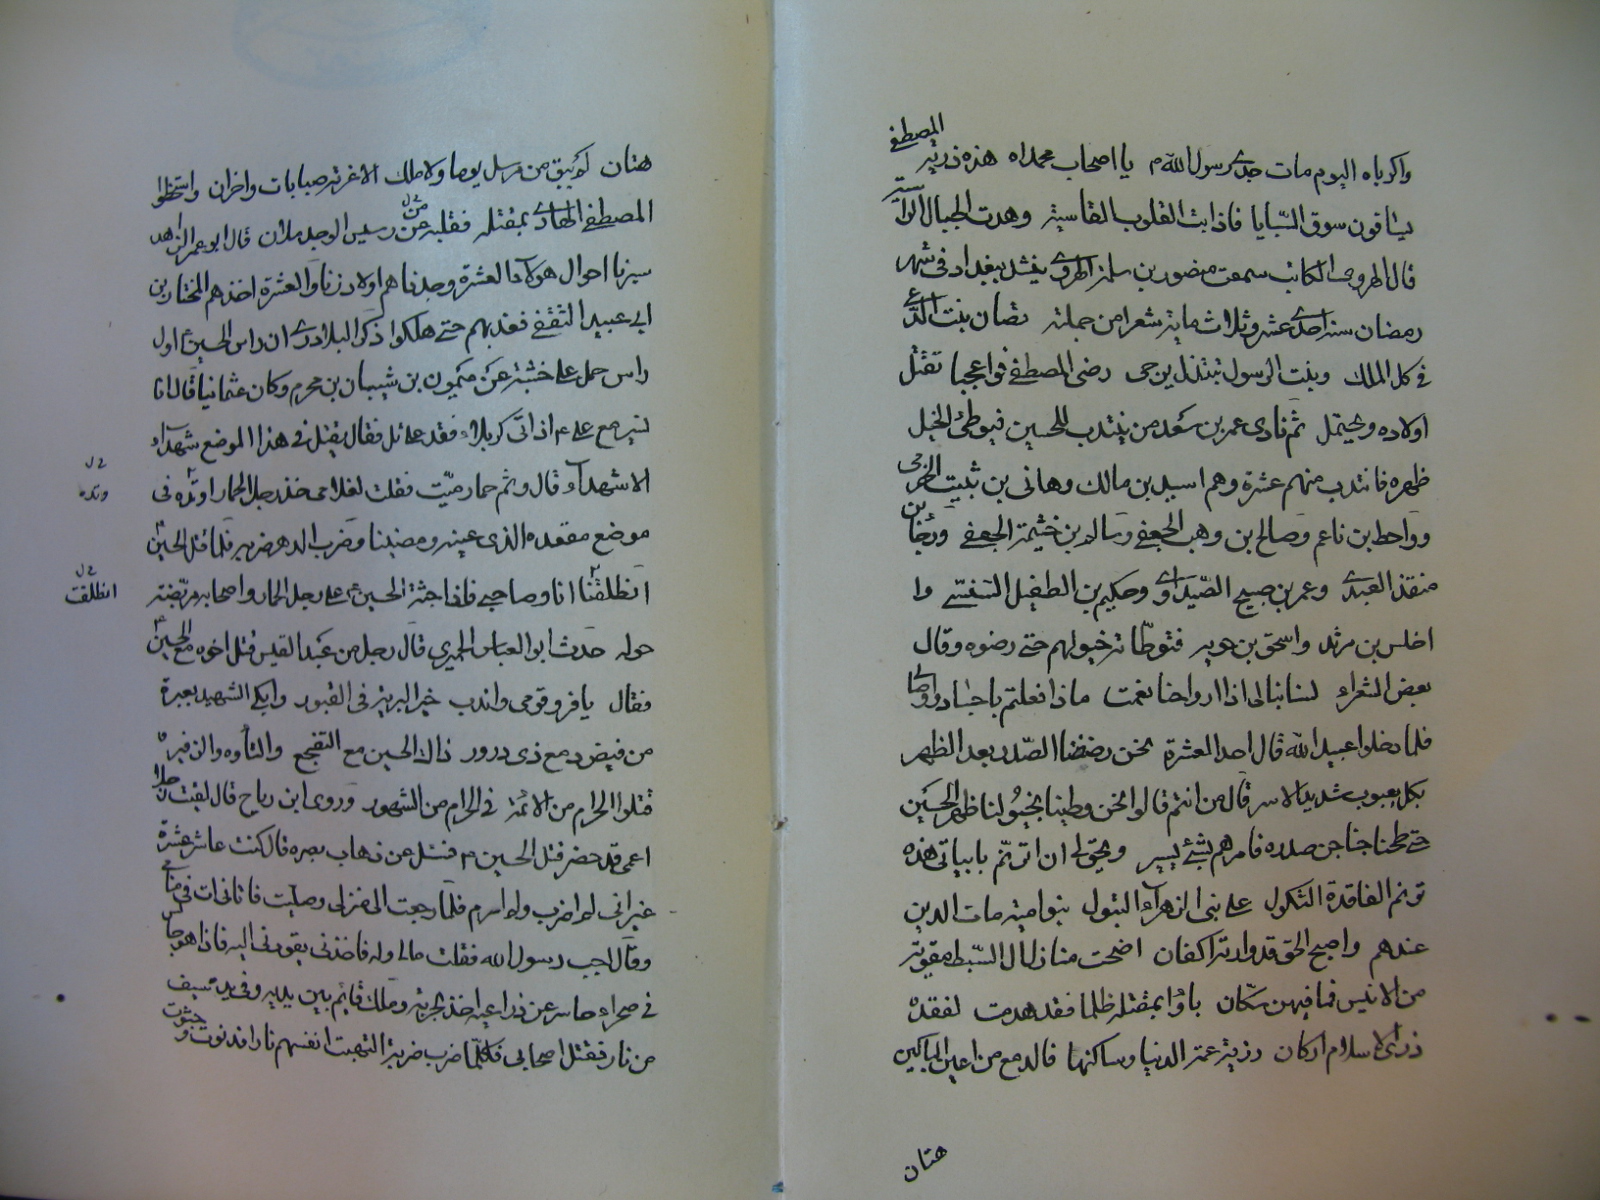 واكرباه اليوم مات جدي رسول الله م يا اصحاب محمداه هذه ذرية المصطفى
يساقون سوق السبايا فاذابت القلوب القاسية وهدت الجبال
قال الكاتب سمعت منصور بن ينشد ببغداد في شهر
رمضان سنة احدى عشرة وثلاث ماية شعرا من جملته تصان بنت الدعي
في كل الملك وبنت الرسول تبتذل يرجى رضى المصطفى فواعجبا تقتل
اولاده ويحتمل ثم نادى عمر بن سعد من ينتدب للحسين فيوطئ الخيل
ظهره فانتدب منهم عشرة وهم اسيد بن مالك وهاني بن ثبيت
وواحظ بن ناعم وصالح بن وهب الجعفي وسالم بن خثيمة الجعفي ورجا بن
منقذ العبدي وعمر بن صبيح الصيداوي وحكيم بن الطفيل وا
اخلس بن مرثد واسحق بن حوير فتوطاته خيولهم حتى رضوه وقال
بعض الشعراء لسنا نبالى اذا ارواحنا نعمت ماذا فعلتم باجساد واوصال
فلما دخلوا عبيد الله قال احد العشرة نحن رضضنا الصدر بعد الظهر
بكل يعبوب شديد الاسر قال من انتم قالوا نحن وطينا بخيولنا ظهر الحسين
حتى طحنا جناجن صدره فامرهم بشئ يسير ويحق لي ان اترنم بابياتي هذه
ترنم الفاقدة الثكول على بني الزهراء البتول بنو امية مات الدين
عندهم واصبح الحق قد وارته اكفان اضحت منازل ال السبط مقوية
من الانيس فما فيهن سكان باؤا بمقتله ظلما فقد هدمت لفقده
ذرى الاسلام اركان رزية عمت الدنيا وساكنها فالدمع من اعين الباكين
هتان
هتان لم يبق من مرسل يوما ولا ملك الا عرته صبابات واحزان واسخطوا
المصطفى الهادي بمقتله فقلبه من رسيس الوجد ملان قال ابو عمر الزاهد
سبرنا احوال هولاء العشرة وجدناهم اولاد زنا والعشرة اخذهم المختار بن
ابي عبيد الثقفي فعذبهم حتى هلكوا ذكر البلادري ان راس الحسين ع اول
راس حمل على خشبة عن ميمون بن شيبان بن محرم وكان عثمانيا قال انا
لنسير مع علي ع اذ اتى كربلاء فقعد على تل فقال يقتل في هذا الموضع شهداء
الا شهداء قال وثم حمار ميت فقلت لغلامى خذ رجل الحمار اوتده في
وتده
موضع مقعده الذي عينه ومضينا وضرب الدهر ضربه فلما قتل الحسين
انطلقنا انا وصاحبي فاذا جثة الحسين ع على رجل الحمار واصحابه مربضة
انطلقت
حوله حدث ابو العباس الحميري قال رجل من عبد القيس قتل اخوه مع الحسين
فقال يا فرو قومي واندبي خير البرية في القبور وابكي الشهيد بعبرة
من فيض دمع ذى درور ذاك الحسين مع التفجع والتاوه والزفير
قتلوا الحرام من الائمة في الحرام من الشهور وروى ابن رياح قال لقيت رجلا
اعمى قد حضر قتل الحسين ع فسئل عن ذهاب بصره قال كنت عاشر عشرة
غير انى لم اضرب ولم ارم فلما رجعت الى منزلى وصليت فاتانى ات في منامي
وقال اجب رسول الله فقلت مالى وله فاخذنى يقودنى اليه فاذا هو جالس
في صحراء حاسر عن ذراعيه اخذ بحربة وملك قائم بين يديه وفي يده سيف
من نار فقتل اصحابى فكلما ضرب ضربة التهبت انفسهم نارا فدنوت وجثوت